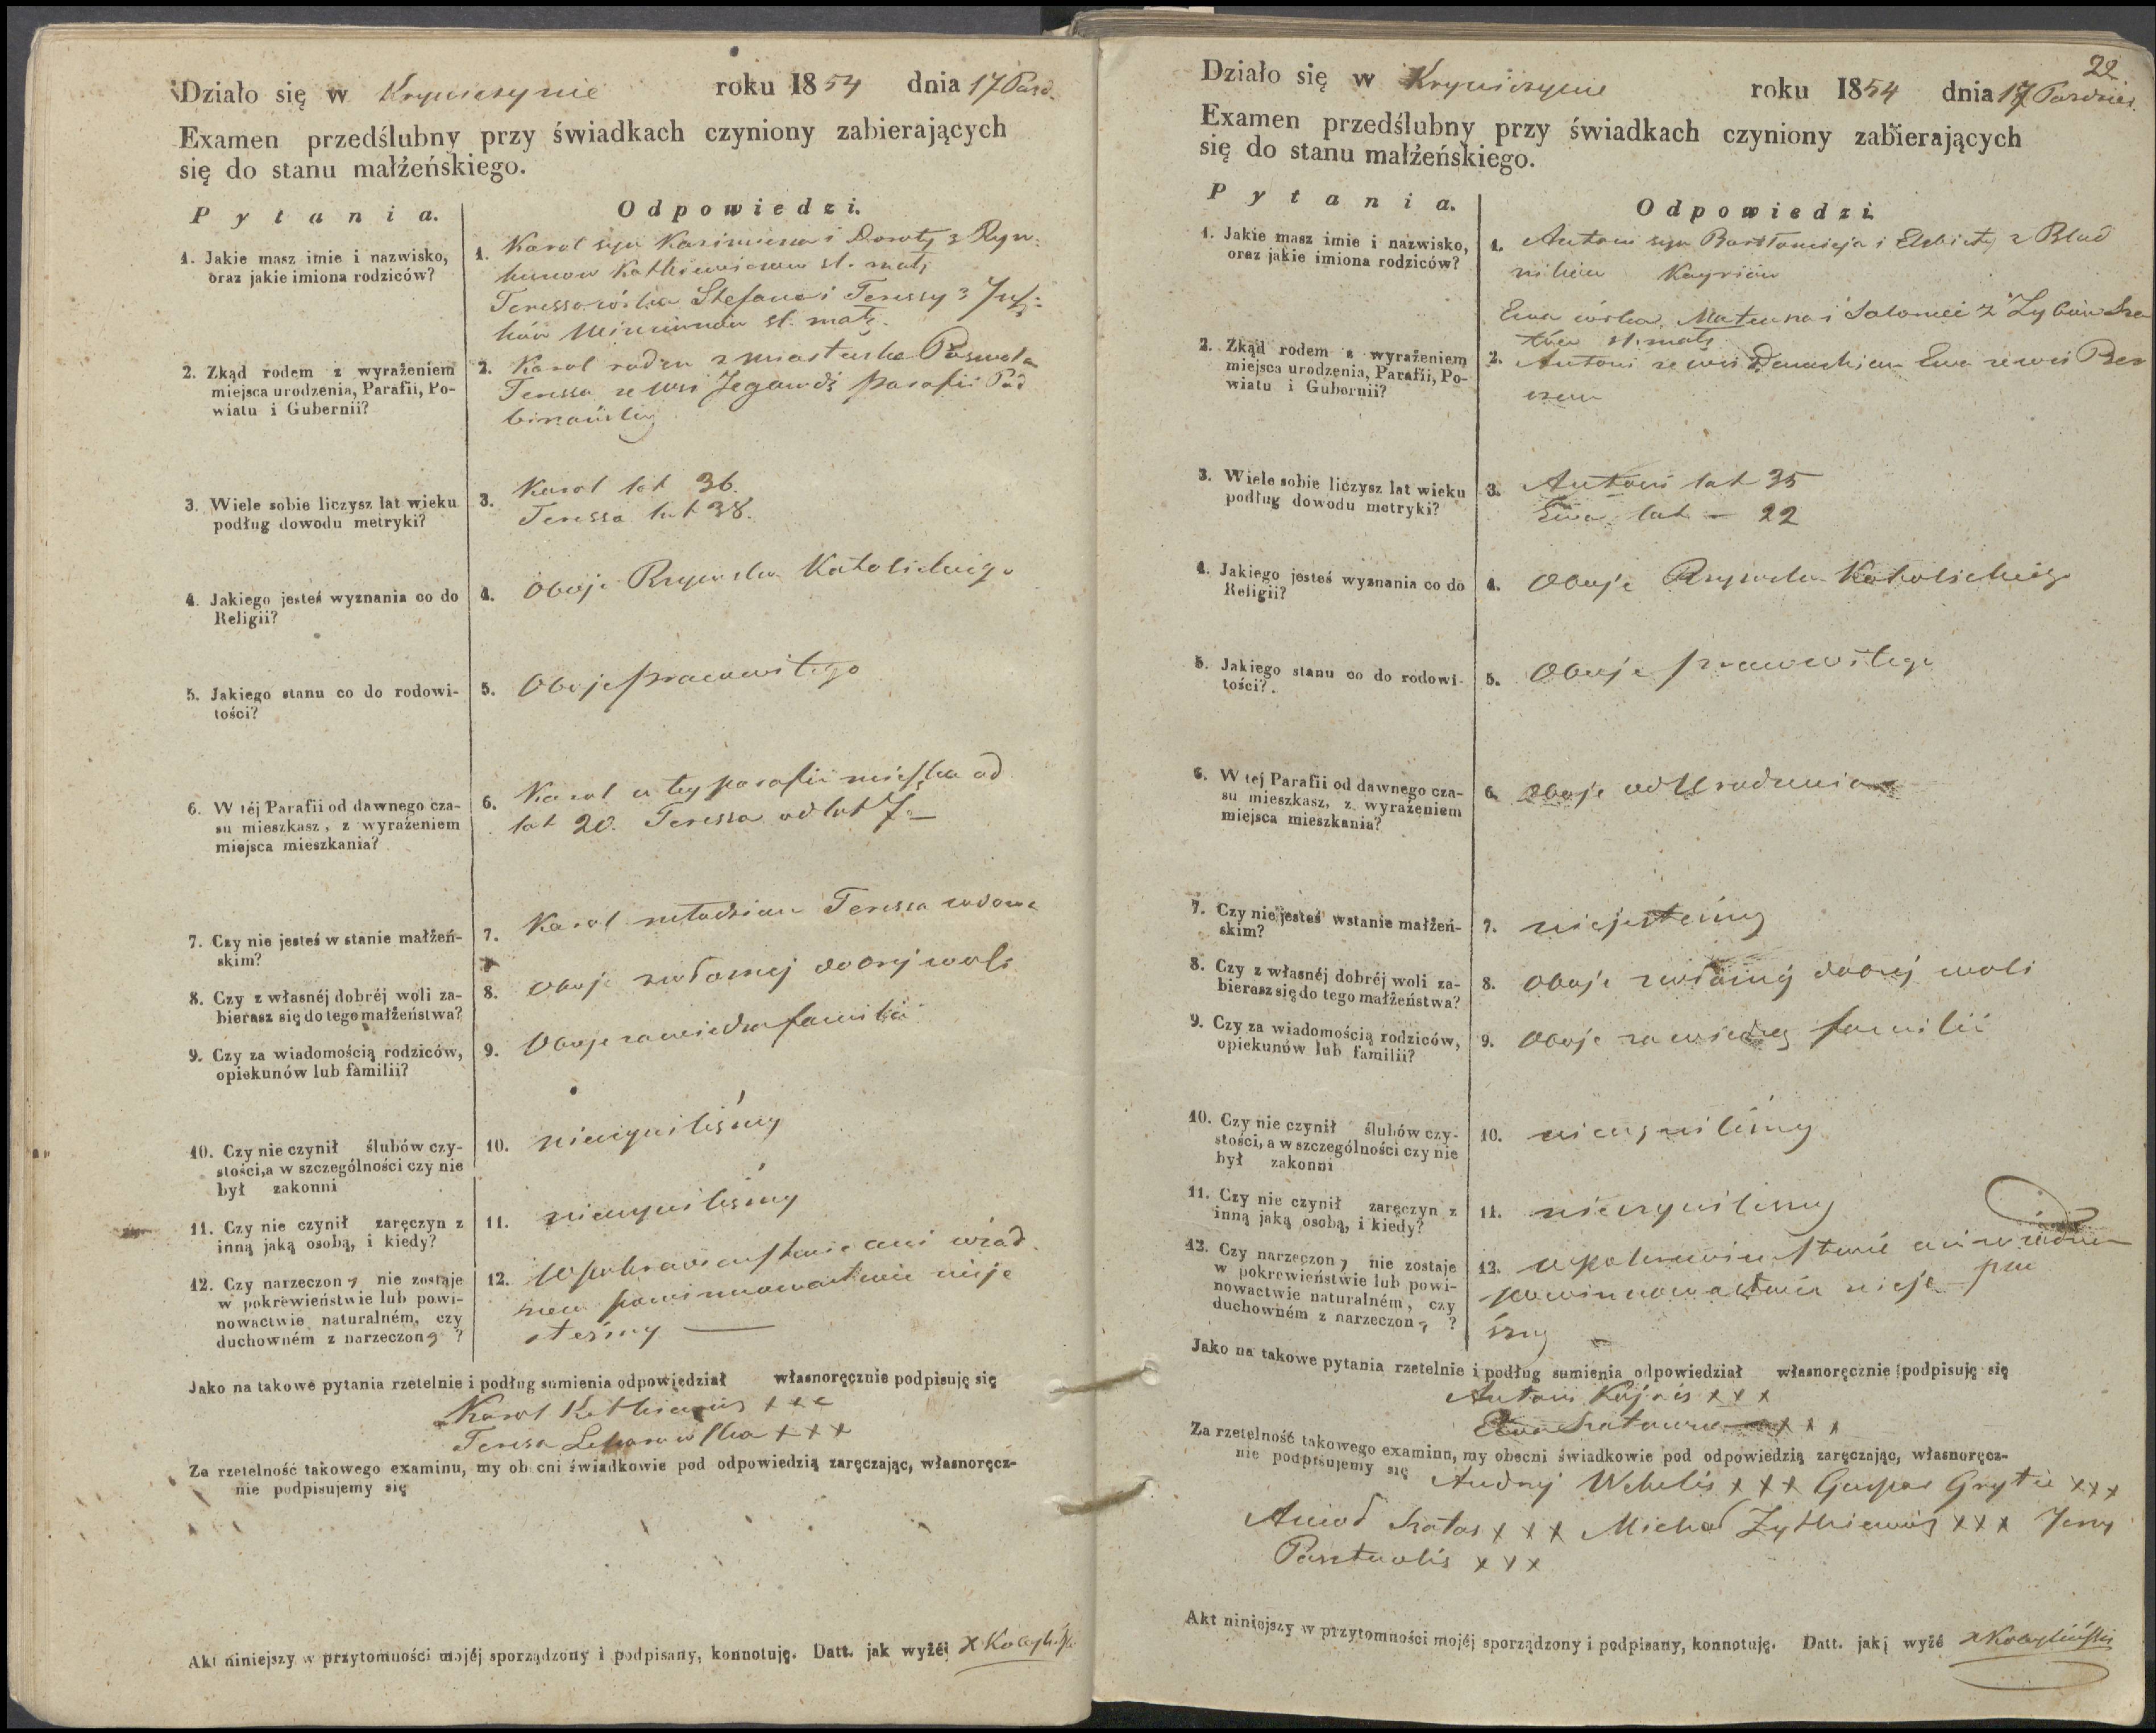 Działo się w Kryniczynie roku 1854 dnia 17 Paźd.
Examen przedślubny przy świadkach czyniony zabierających
się do stanu małżeńskiego.
Pytania.
Odpowiedzi.
1. Jakie masz imie i nazwisko,
oraz jakie imiona rodziców?
1. Karol syn Kazimierza i Doroty z
st. małż
Teressa córka Stefana i Teressy z
st. małż.
2. Zkąd rodem z wyrażeniem
miejsca urodzenia, Parafii, Po-
wiatu i Gubernii?
2. Karol rodem z miasteczka
Teressa ze wsi parafii
3. Wiele sobie liczysz lat wieku
podług dowodu metryki?
3. Karol lat 36.
Teressa lat 38.
4. Jakiego jesteś wyznania co do
Religii?
4. Oboje Rzymsko Katolickiego
5. Jakiego stanu co do rodowi-
tości?
5. Oboje pracowitego
6. W téj Parafii od dawnego cza-
su mieszkasz, z wyrażeniem
miejsca mieszkania?
6. Karol w tey parafii mieszka od
lat 20. Teressa od lat 7.—
7. Czy nie jesteś w stanie małżeń-
skim?
7. Karol młodzian Teressa wdowa
8. Czy z własnéj dobréj woli za-
bierasz się do tego małżeństwa?
8. Oboje z własnej dobrej woli
9. Czy za wiadomością rodziców,
opiekunów lub familii?
9. Oboje za wiedzą familii
10. Czy nie czynił ślubów czy-
stości, a w szczególności czy nie
był zakonni
10. nieczyniliśmy
11. Czy nie czynił zaręczyn z
inną jaką osobą, i kiedy?
11. nieczyniliśmy
12. Czy narzeczony nie zostaje
w pokrewieństwie lub powi-
nowactwie naturalném, czy
duchowném z narzeczoną ?
12. W pokrewieństwie ani wżad
nem powinnowactwie nieje
steśmy —
Jako na takowe pytania rzetelnie i podług sumienia odpowiedział własnoręcznie podpisuję się
Karol xxx
Teresa xxx
Za rzetelność takowego examinu, my obecni świadkowie pod odpowiedzią zaręczając, własnoręcz-
nie podpisujemy się
Akt niniejszy w przytomności mojéj sporządzony i podpisany, konnotuję. Datt. jak wyżéj
22
Działo się w Kryniczynie roku 1854 dnia 17 Paździer.
Examen przedślubny przy świadkach czyniony zabierających
się do stanu małżeńskiego.
Pytania.
Odpowiedzi.
1. Jakie masz imie i nazwisko,
oraz jakie imiona rodziców?
1. Antoni syn Bartłomieja i Elżbiety z
Ewa córka Mateusza i Salomei z
st. małż
2. Zkąd rodem z wyrażeniem
miejsca urodzenia, Parafii, Po-
wiatu i Gubernii?
2. Antoni ze wsi Ewa ze wsi
3. Wiele sobie liczysz lat wieku
podług dowodu metryki?
3. Antoni lat 35
Ewa lat — 22
4. Jakiego jesteś wyznania co do
Religii?
4. Oboje Rzymsko Katolickiego
5. Jakiego stanu co do rodowi-
tości?
5. Oboje pracowitego
6. W téj Parafii od dawnego cza-
su mieszkasz, z wyrażeniem
miejsca mieszkania?
6. oboje od Urodzenia
7. Czy nie jesteś wstanie małżeń-
skim?
7. niejesteśmy
8. Czy z własnéj dobréj woli za-
bierasz się do tego małżeństwa?
8. Oboje dobrej woli
9. Czy za wiadomością rodziców,
opiekunów lub familii?
9. Oboje za wiedzą familii
10. Czy nie czynił ślubów czy-
stości, a w szczególności czy nie
był zakonni
10. nieczyniliśmy
11. Czy nie czynił zaręczyn z
inną jaką osobą, i kiedy?
11. nieczyniliśmy
12. Czy narzeczony nie zostaje
w pokrewieństwie lub powi-
nowactwie naturalném, czy
duchowném z narzeczoną ?
12. w pokrewieństwie ani
powinnowactwie
Jako na takowe pytania rzetelnie i podług sumienia odpowiedział własnoręcznie podpisuję się
Antoni xxx
Ewa xxx
Za rzetelność takowego examinu, my obecni świadkowie pod odpowiedzią zaręczając, własnoręcz-
nie podpisujemy się Andrzej xxx xxx
xxx Michał xxx Jerzy
xxx
Akt niniejszy w przytomności mojéj sporządzony i podpisany, konnotuję. Datt. jak wyżé